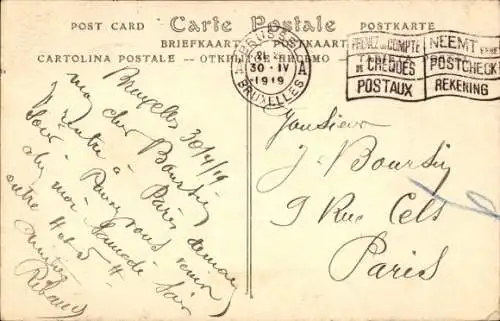 POST CARD Carte Postale POSTKARTE
BRIEFKAART POSTKAART
CARTOLINA POSTALE — OTKRITOE
BRUSSEL
30 · IV
1919
A
BRUXELLES
PRENEZ UN COMPTE
DE CHEQUES
POSTAUX
NEEMT EENE
POSTCHECK
REKENING
Bruxelles 30/4/19
mon cher Boursin
Je rentre à Paris demain
soir. Pouvez vous venir
chez moi Samedi soir
entre 4 et 5 H
Amitiés
Monsieur
J. Boursin
9 Rue Cels
Paris